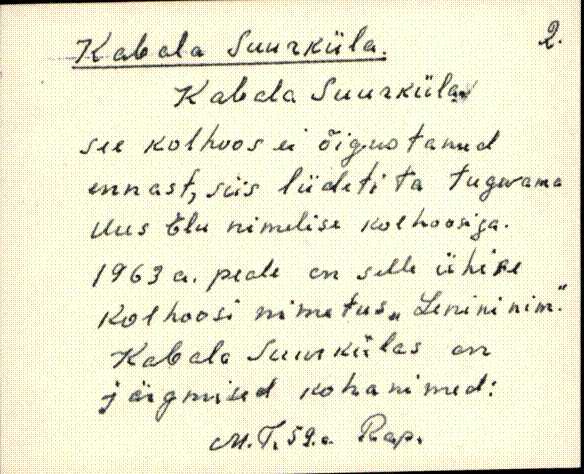 2.
Kabala Suurküla.
Kabala Suurküla
see kolhoos ei õigustanud
ennast, siis liideti ta tugevama
Uus Elu nimelise kolhoosiga.
1963 a. peale on selle ühise
Kolhoosi nimetus „Lenini nim."
Kabala Suurkülas on
järgmised kohanimed:
M.T. 59.a. Rap.